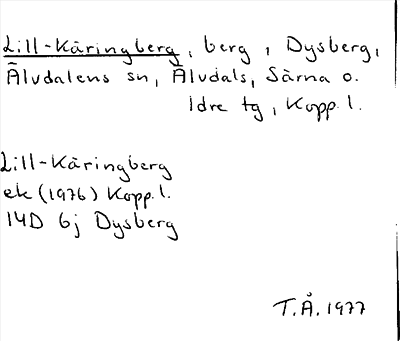 Lill-Käringberg, berg, Dysberg,
Älvdalens sn, Älvdals, Särna o.
Idre tg, Kopp. l.
Lill-Käringberg
ek (1976) Kopp. l.
14D 6j Dysberg
T.Å. 1977